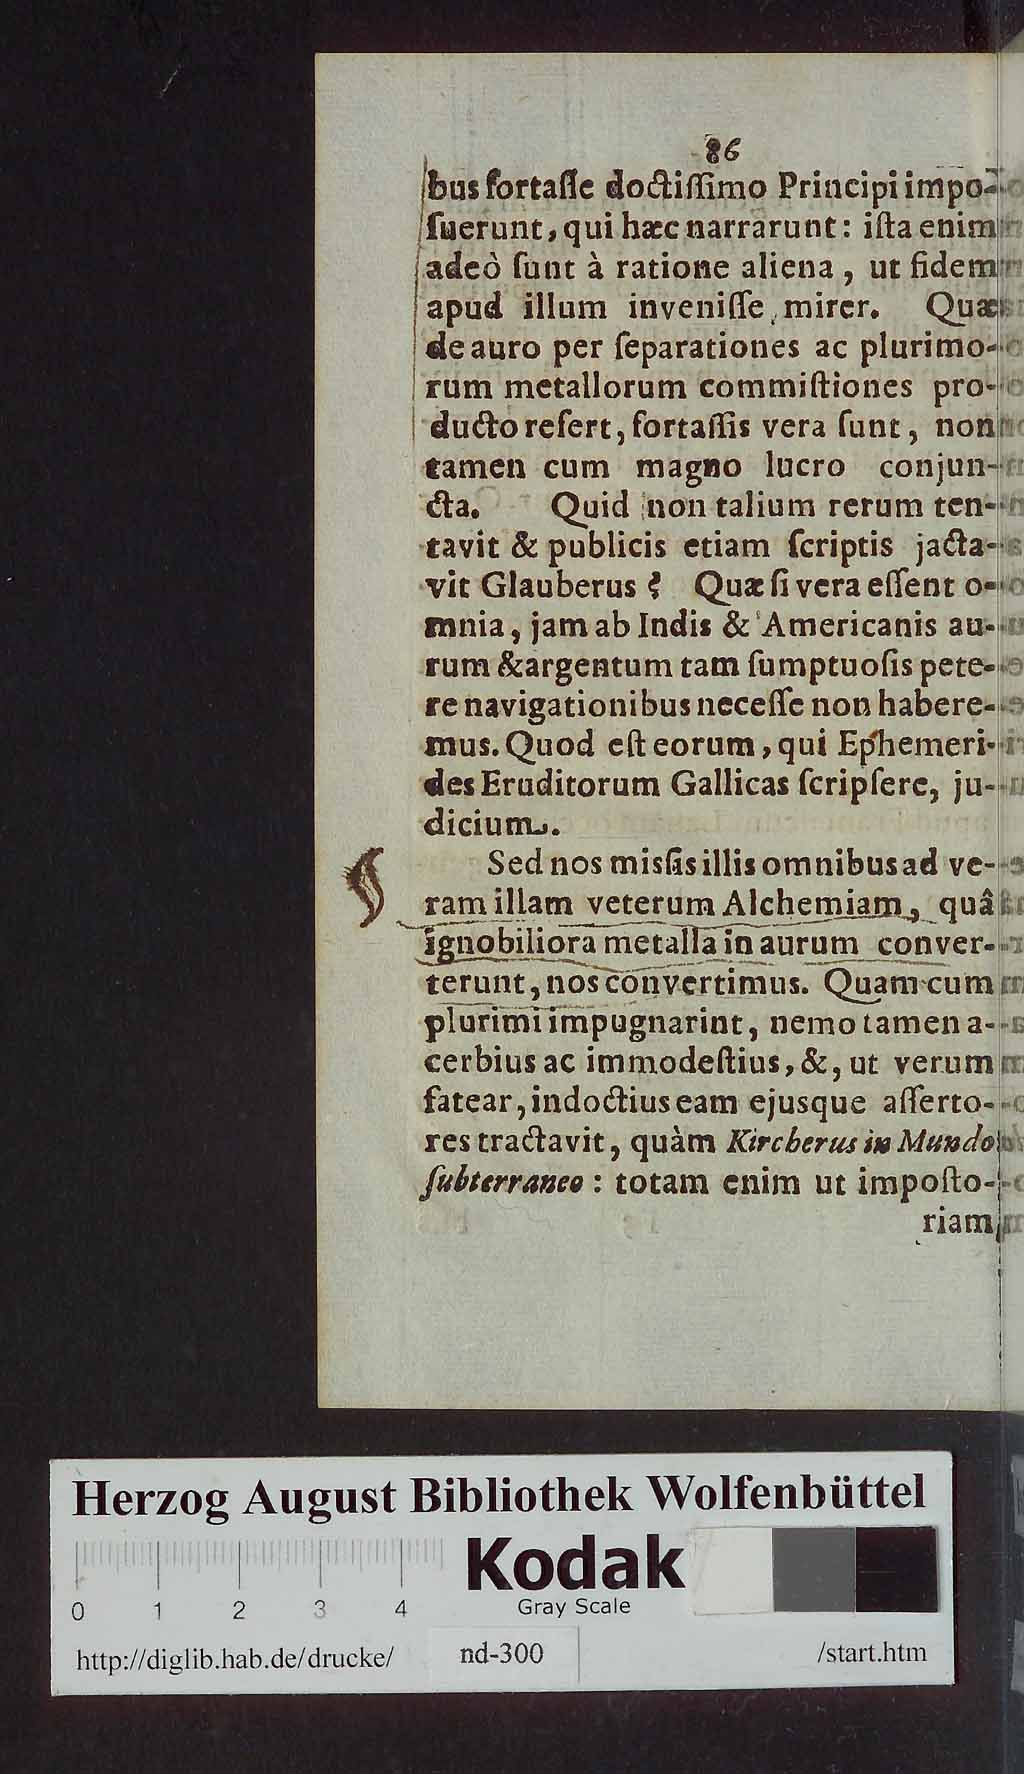 86
bus fortasſe doctiſſimo Principi impo-
ſuerunt, qui hæc narrarunt: iſta enim
adeò ſunt à ratione aliena, ut fidem
apud illum inveniſſe mirer. Quæ
de auro per ſeparationes ac plurimo-
rum metallorum commiſtiones pro-
ducto refert, fortaſſis vera ſunt, non
tamen cum magno lucro conjun-
cta. Quid non talium rerum ten-
tavit & publicis etiam ſcriptis jacta-
vit Glauberus? Quæ ſi vera eſſent o-
mnia, jam ab Indis & Americanis au-
rum & argentum tam ſumptuoſis pete-
re navigationibus neceſſe non habere-
mus. Quod eſt eorum, qui Ephemeri-
des Eruditorum Gallicas ſcripſere, ju-
dicium.
Sed nos misſis illis omnibus ad ve-
ram illam veterum Alchemiam, quâ
ignobiliora metalla in aurum conver-
terunt, nos convertimus. Quam cum
plurimi impugnarint, nemo tamen a-
cerbius ac immodeſtius, &, ut verum
fatear, indoctius eam ejusque aſſerto-
res tractavit, quàm Kircherus in Mundo
ſubterraneo: totam enim ut impoſto-
riam
Herzog August Bibliothek Wolfenbüttel
Kodak
Gray Scale
0 1 2 3 4
http://diglib.hab.de/drucke/ nd-300 /start.htm